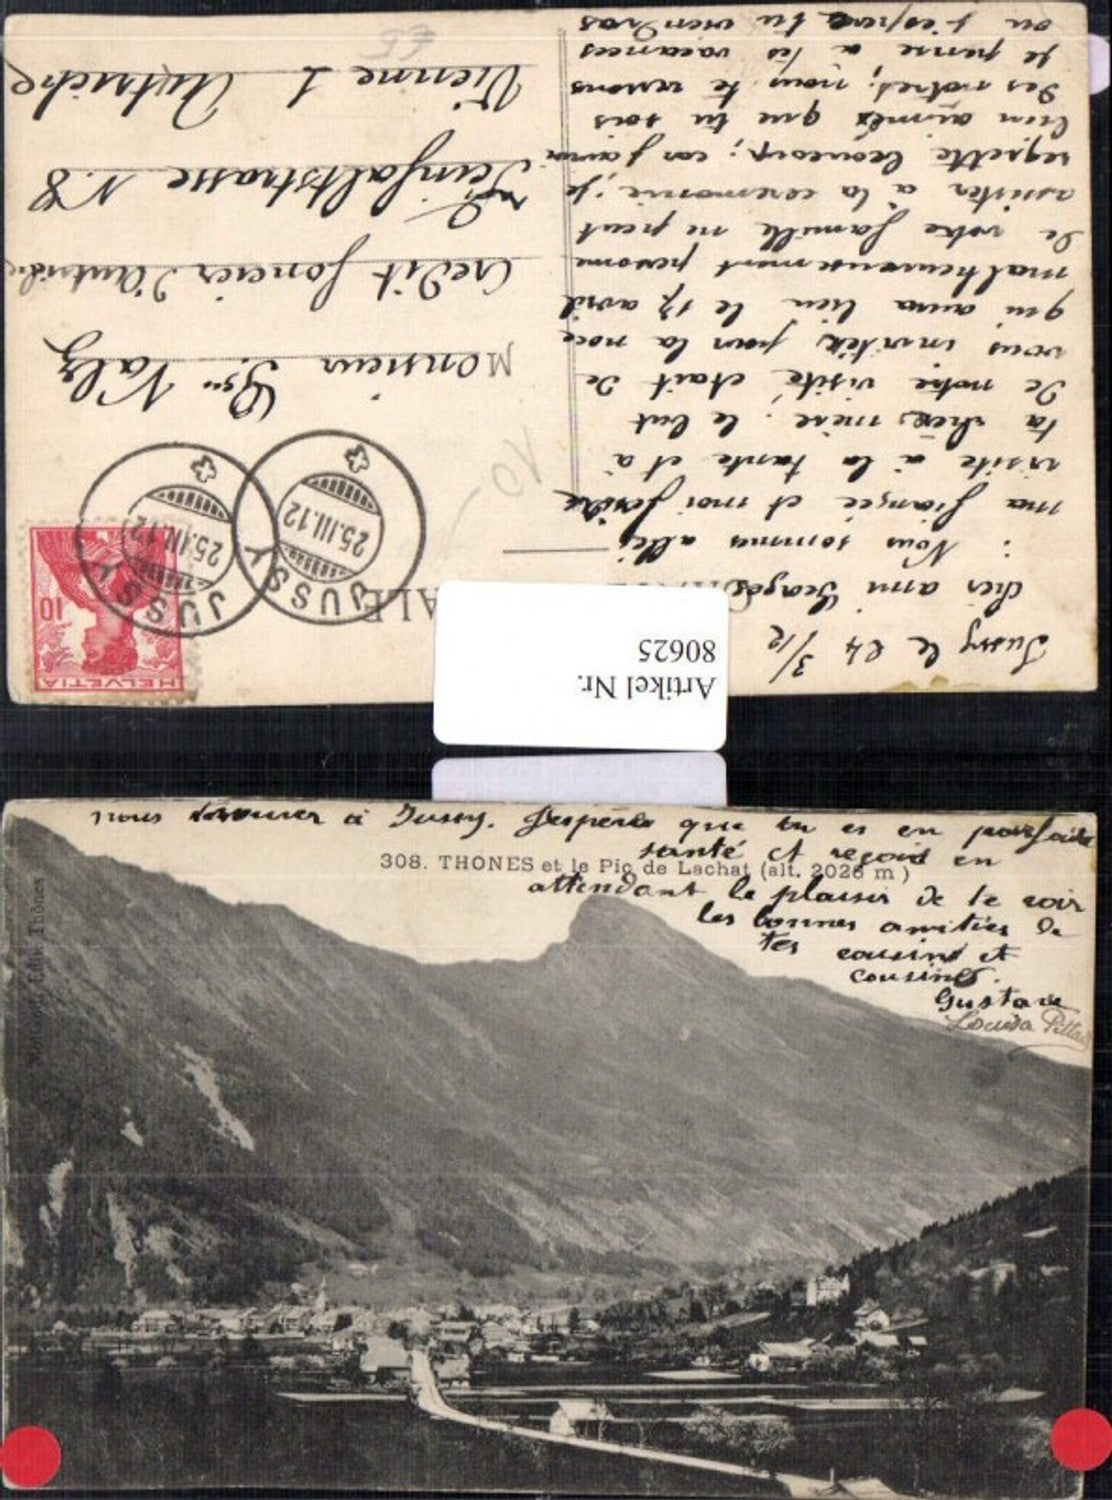 Jussy le 24 3/12
Cher ami Georges
: Nous sommes allés
ma fiancée et moi faire
visite à la tante et à
ta chère mère. le but
de notre visite était de
vous invités pour la noce
qui aura lieu le 17 avril
malheureusement personne
de votre famille ne peut
assister à la ceremonie; je
regrette beaucoup; car j'aurai
bien aimés que tu sois
des notres; nous te verrons
je pense à tes vacances
ou j'espere tu viendras
Monsieur Ges Valz
Credit foncier d'Autriche
Teinfaltstrasse N. 8
Vienne 1 Autriche
10
JUSSY
25.III.12
JUSSY
25.III.12
HELVETIA
10
ALE
Artikel Nr.
80625
nous trouver à Jussy. J'espère que tu es en parfaite
santé et reçois en
308. THONES et le Pic de Lachat (alt. 2026 m)
attendant le plaisir de te voir
les bonnes amitiés de
tes cousins et
cousines.
Gustave
Louisa
Edit. Thônes